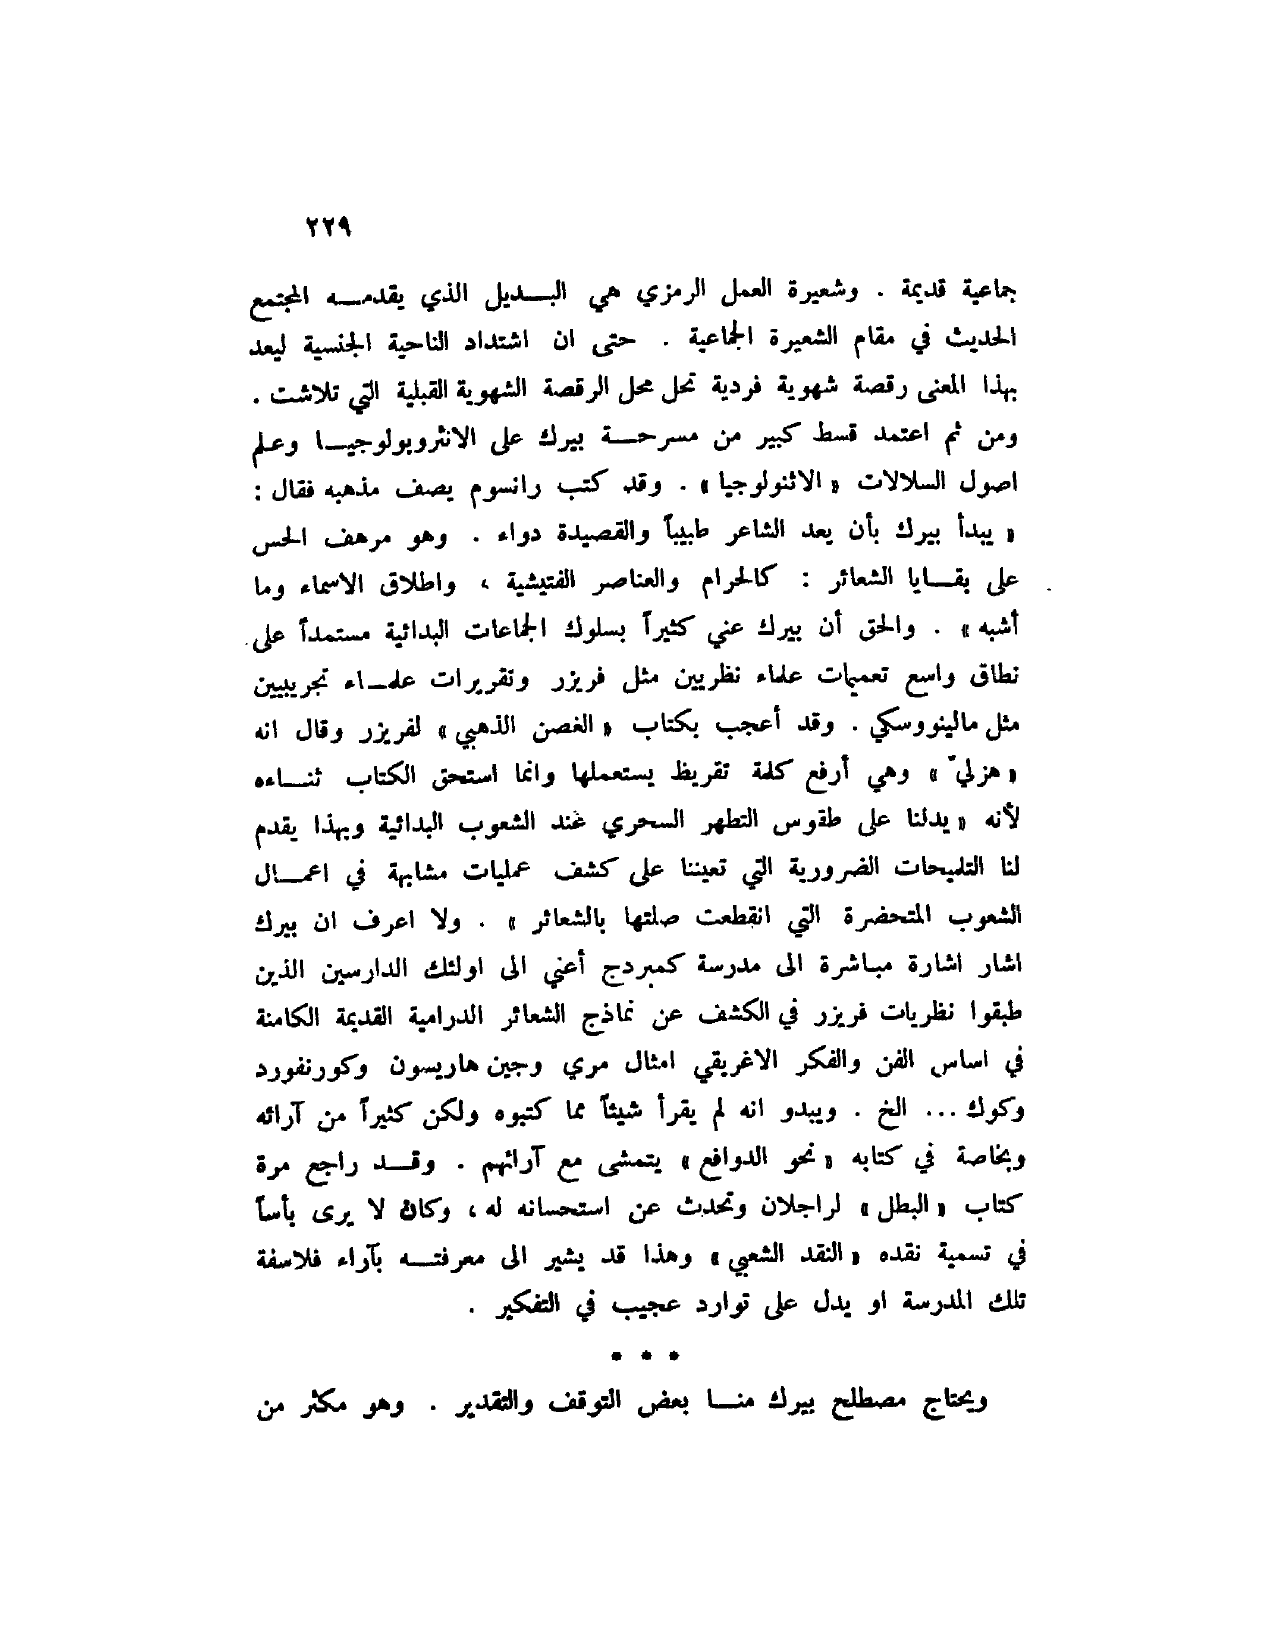 ٢٢٩
جماعية قديمة . وشعيرة العمل الرمزي هي البــديل الذي يقدمــه المجتمع
الحديث في مقام الشعيرة الجماعية . حتى ان اشتداد الناحية الجنسية ليعد
بهذا المعنى رقصة شهوية فردية تحل محل الرقصة الشهوية القبلية التي تلاشت .
ومن ثم اعتمد قسط كبير من مسرحــة بيرك على الانثروبولوجيــا وعلم
اصول السلالات « الاثنولوجيا » . وقد كتب رانسوم يصف مذهبه فقال :
« يبدأ بيرك بأن يعد الشاعر طبيباً والقصيدة دواء . وهو مرهف الحس
على بقــايا الشعائر : كالحرام والعناصر الفتيشية ، واطلاق الاسماء وما
أشبه » . والحق أن بيرك عني كثيراً بسلوك الجماعات البدائية مستمداً على
نطاق واسع تعميمات علماء نظريين مثل فريزر وتقريرات علمــاء تجريبيين
مثل مالينووسكي . وقد أعجب بكتاب « الغصن الذهبي » لفريزر وقال انه
« هزليّ » وهي أرفع كلمة تقريظ يستعملها وانما استحق الكتاب ثنــاءه
لأنه « يدلنا على طقوس التطهر السحري عند الشعوب البدائية وبهذا يقدم
لنا التلميحات الضرورية التي تعيننا على كشف عمليات مشابهة في اعمــال
الشعوب المتحضرة التي انقطعت صلتها بالشعائر » . ولا اعرف ان بيرك
اشار اشارة مباشرة الى مدرسة كمبردج أعني الى اولئك الدارسين الذين
طبقوا نظريات فريزر في الكشف عن نماذج الشعائر الدرامية القديمة الكامنة
في اساس الفن والفكر الاغريقي امثال مري وجين هاريسون وكورنفورد
وكوك ... الخ . ويبدو انه لم يقرأ شيئاً مما كتبوه ولكن كثيراً من آرائه
وبخاصة في كتابه « نحو الدوافع » يتمشى مع آرائهم . وقــد راجع مرة
كتاب « البطل » لراجلان وتحدث عن استحسانه له ، وكان لا يرى بأساً
في تسمية نقده « النقد الشعبي » وهذا قد يشير الى معرفتــه بآراء فلاسفة
تلك المدرسة او يدل على توارد عجيب في التفكير .
* * *
ويحتاج مصطلح بيرك منــا بعض التوقف والتقدير . وهو مكثر من